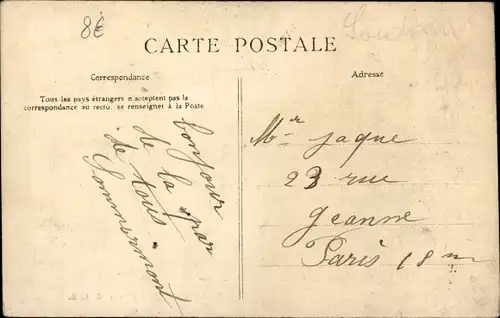 8€
CARTE POSTALE
Correspondance
Tous les pays étrangers n'acceptent pas la
correspondance au recto, se renseigner à la Poste
bonjour
de la par
de tous
Sommermont
Adresse
Mr Jaque
23 rue
Jeanne
Paris 18m